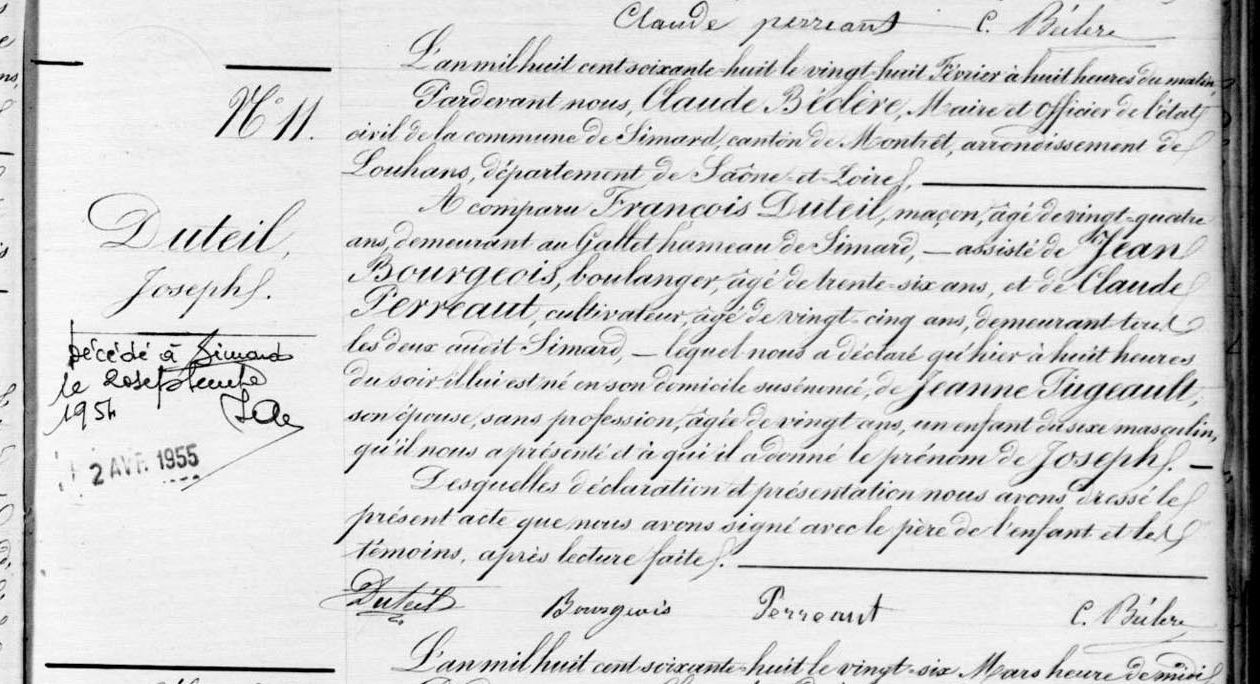 Claude perreaut C. Béclère
L'an mil huit cent soixante-huit le vingt-huit Février à huit heures du matin
N° 11.
Pardevant nous, Claude Béclère, Maire et officier de l'état
civil de la commune de Simard, canton de Montrêt, arrondissement de
Louhans, département de Saône-et-Loire, —
Duteil,
Joseph.
A comparu François Duteil, maçon, âgé de vingt-quatre
ans, demeurant au Gallet hameau de Simard, — assisté de Jean
Bourgeois, boulanger, âgé de trente-six ans, et de Claude
Perreaut, cultivateur, âgé de vingt-cinq ans, demeurant tous
les deux audit Simard, — lequel nous a déclaré qu'hier à huit heures
du soir il lui est né en son domicile susénoncé, de Jeanne Pugeault,
son épouse, sans profession, âgée de vingt ans, un enfant du sexe masculin,
qu'il nous a présenté et à qui il a donné le prénom de Joseph. —
Décédé à Simard
le 20 septembre
1954
2 AVR. 1955
Desquelles déclaration et présentation nous avons dressé le
présent acte que nous avons signé avec le père de l'enfant et les
témoins, après lecture faite. —
Duteil Bourgeois Perreaut C. Béclère
L'an mil huit cent soixante-huit le vingt-six Mars heure de midi